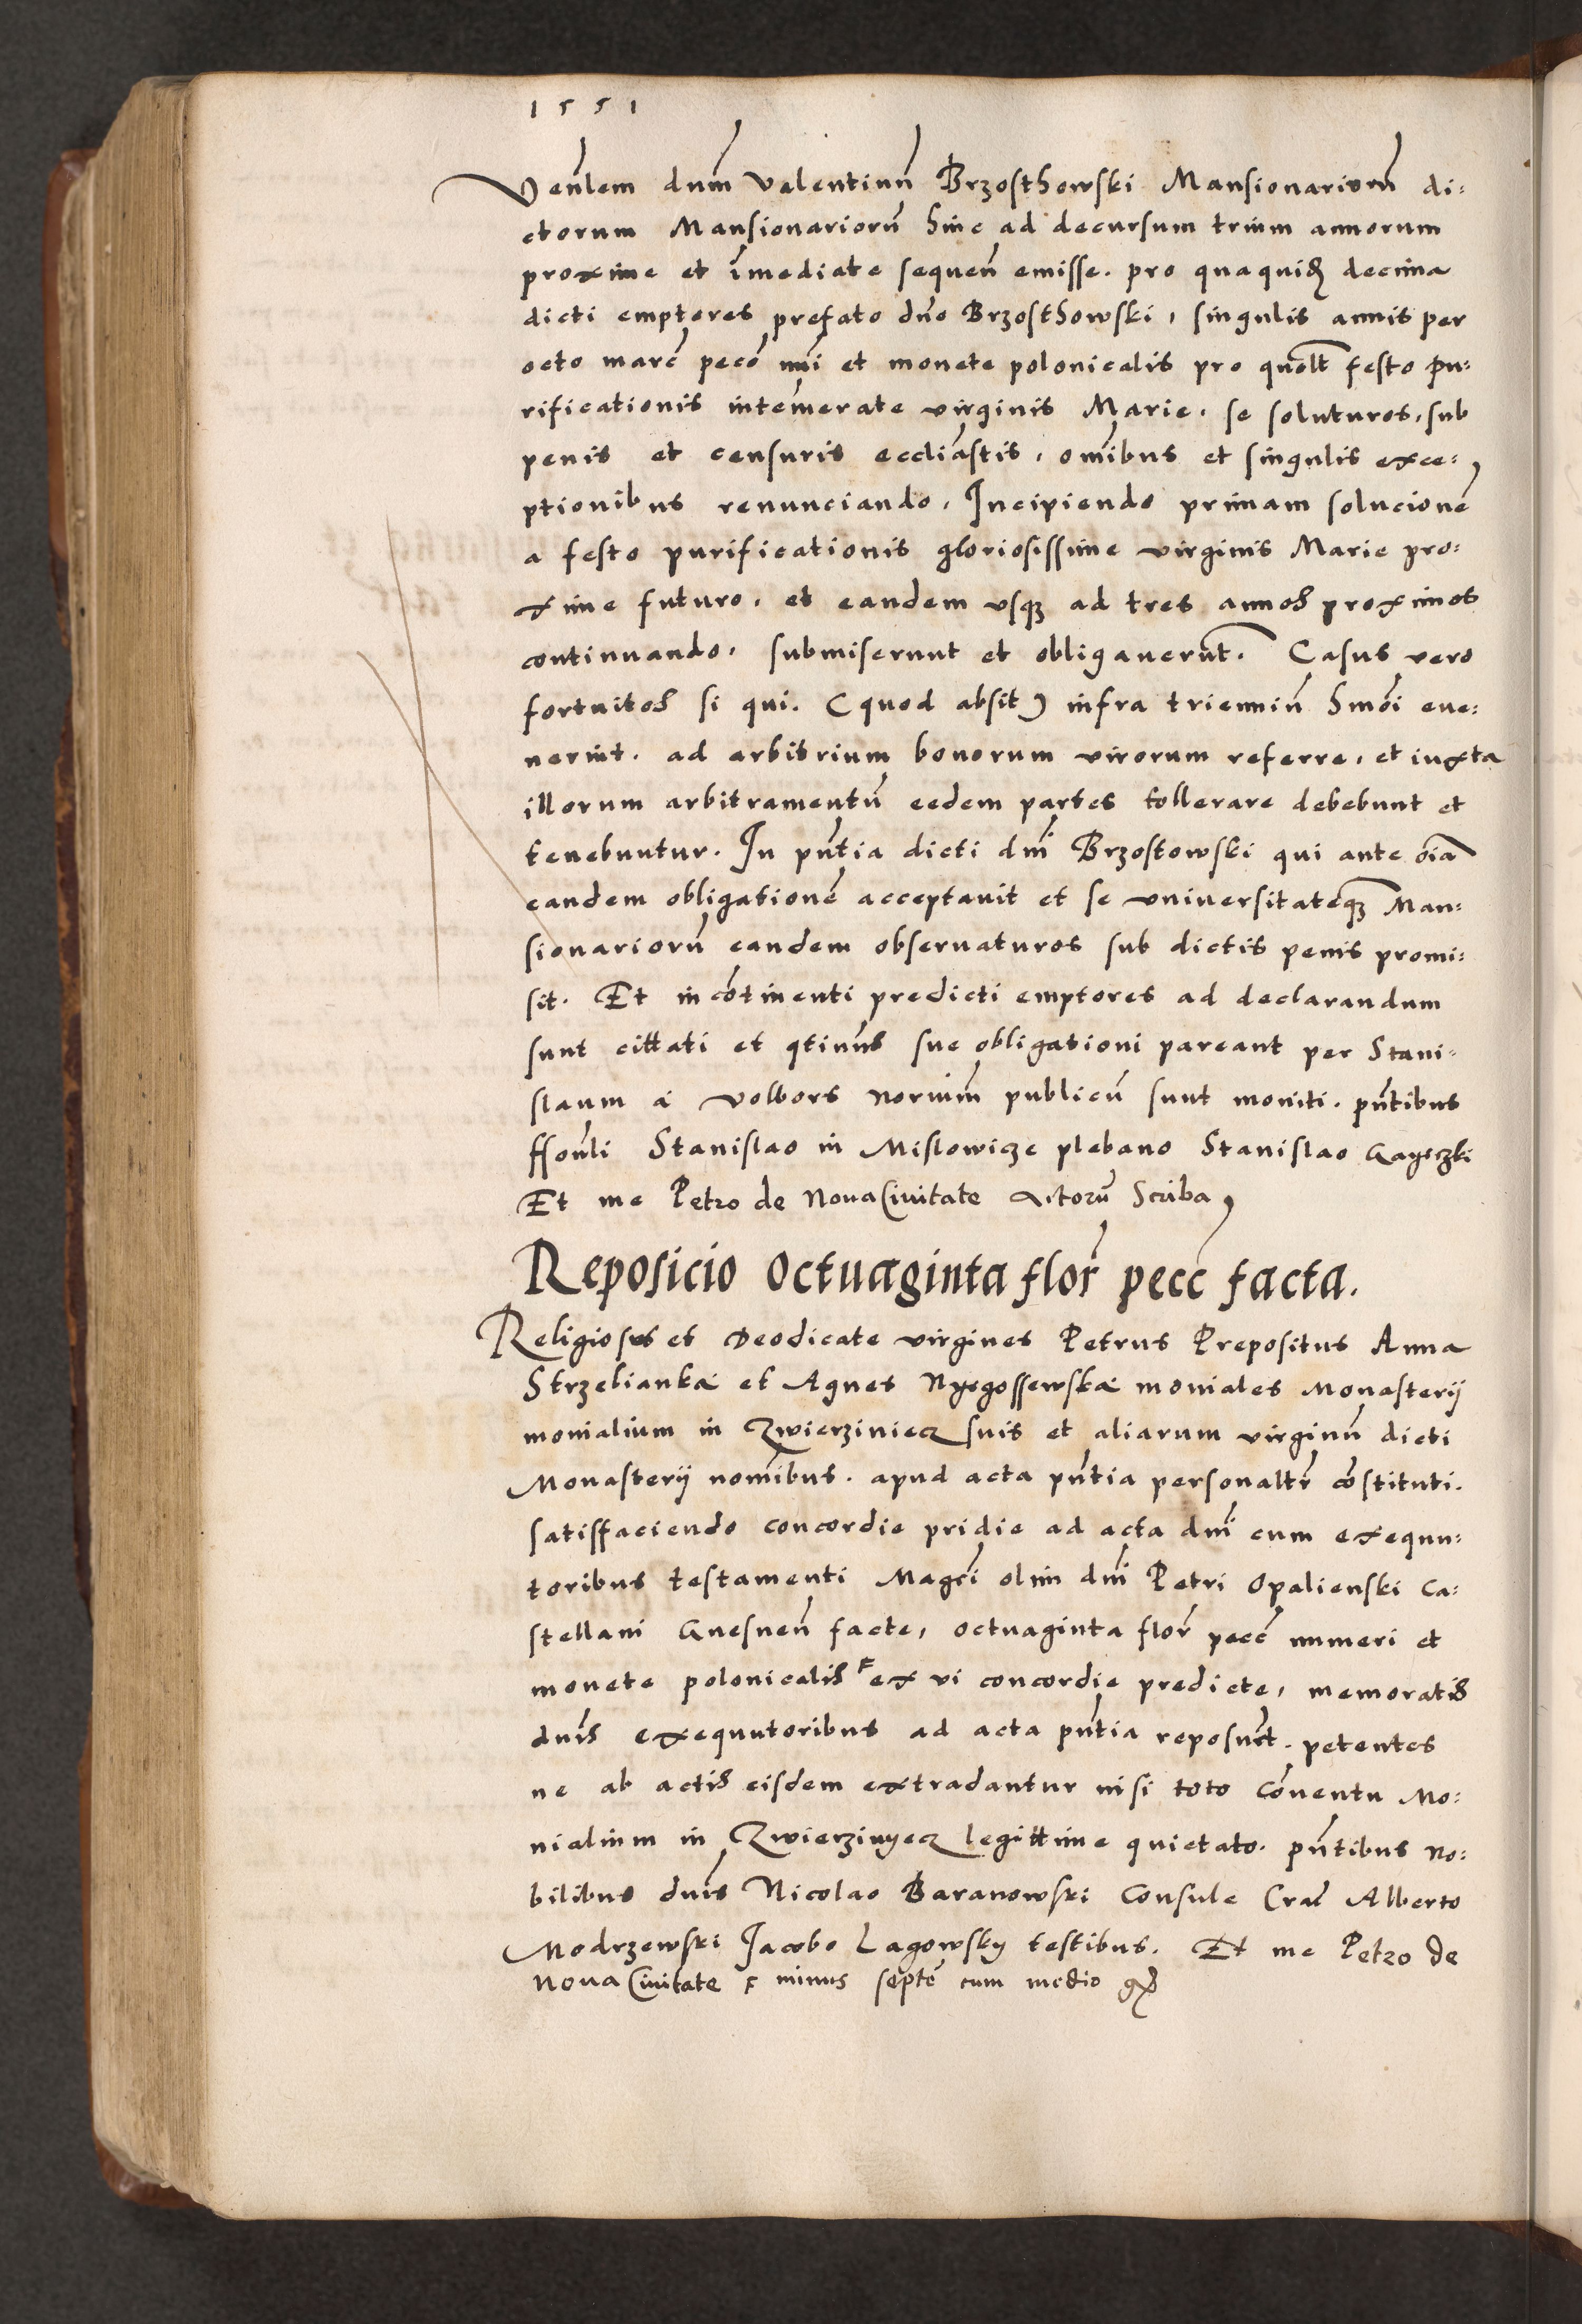 1551
Venlem dnm Valentinu Brzosthowski Mansionarium di:
ctorum Mansionarioru hinc ad decursum trium annorum
proxime et imediate sequen emisse. pro quaquid decima
dicti emptores prefato dno Brzosthowski, singulis annis per
octo marc peco nui et monete polonicalis pro quolt festo pu:
rificationis intemerate virginis Marie, se soluturos, sub
penis et censuris eccliastis, omibus et singulis exce:
ptionibus renunciando, Incipiendo primam solucione
a festo purificationis gloriosissime virginis Marie pro:
xime futuro, et eandem vsq ad tres annos proximos
continuando, submiserunt et obligauerut. Casus vero
fortuitos si qui. (quod absit) infra trienniu hmoi eue:
nerint. ad arbitrium bonorum virorum referre, et iuxta
illorum arbitramentu eedem partes tollerare debebunt et
tenebuntur. In pntia dicti dni Brzostowski qui ante oia
eandem obligatione acceptauit et se vniuersitateq Man:
sionarioru eandem obseruaturos sub dictis penis promi:
sit. Et incotinenti predicti emptores ad declarandum
sunt cittati et qtinus sue obligationi pareant per Stani:
slaum a Volbors norium publicu sunt moniti. pntibus
Stanislao in Mislowicze plebano Stanislao
Et me Petro de Noua Ciuitate Actoru Scriba
Reposicio Octuaginta flor pecc facta.
Religiosus et Deodicate virgines Petrus Prepositus Anna
Strzelianka et Agnes Nyegossewska moniales Monasterij
monialium in Zwierziniecz suis et aliarum virginu dicti
Monasterij nomibus. apud acta pntia personaltr costituti.
satisffaciendo concordie pridie ad acta dni cum exequu:
toribus testamenti Magci olim dni Petri Opalienski Ca:
stellani Gnesnen facte, octuaginta flor pecc numeri et
monete polonicalis F ex vi concordie predicte, memoratis
dnis exequutoribus ad acta pntia reposuet. petentes
ne ab actis eisdem extradantur nisi toto Couentu Mo:
nialium in Zwierzinyecz legittime quietato. pntibus no:
bilibus dnis Nicolao Baranowski Consule Crac Alberto
Modrzewski Jacobo Lagowsky testibus. Et me Petro de
Noua Ciuitate F minus septe cum medio gr